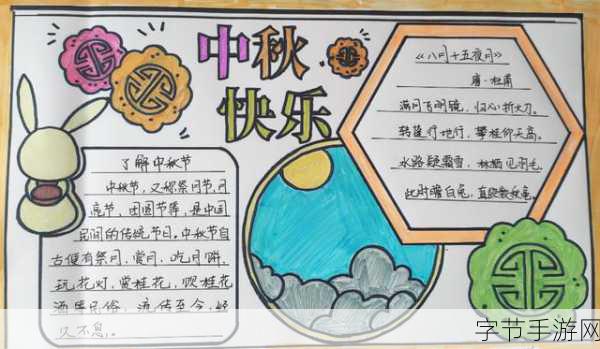 中秋
快乐
了解中秋节
中秋节，又称祭月节、月
亮节、团圆节等，是中国
民间的传统节日。中秋节自
古便有祭月、赏月、吃月饼、
玩花灯、赏桂花、饮桂花
酒等民俗，流传至今，经
久不息。
《八月十五夜月》
唐·杜甫
满月飞明镜，归心折大刀。
转蓬行地远，攀桂仰天高。
水路疑霜雪，林栖见羽毛。
此时瞻白兔，直欲数秋毫。
字节手游网